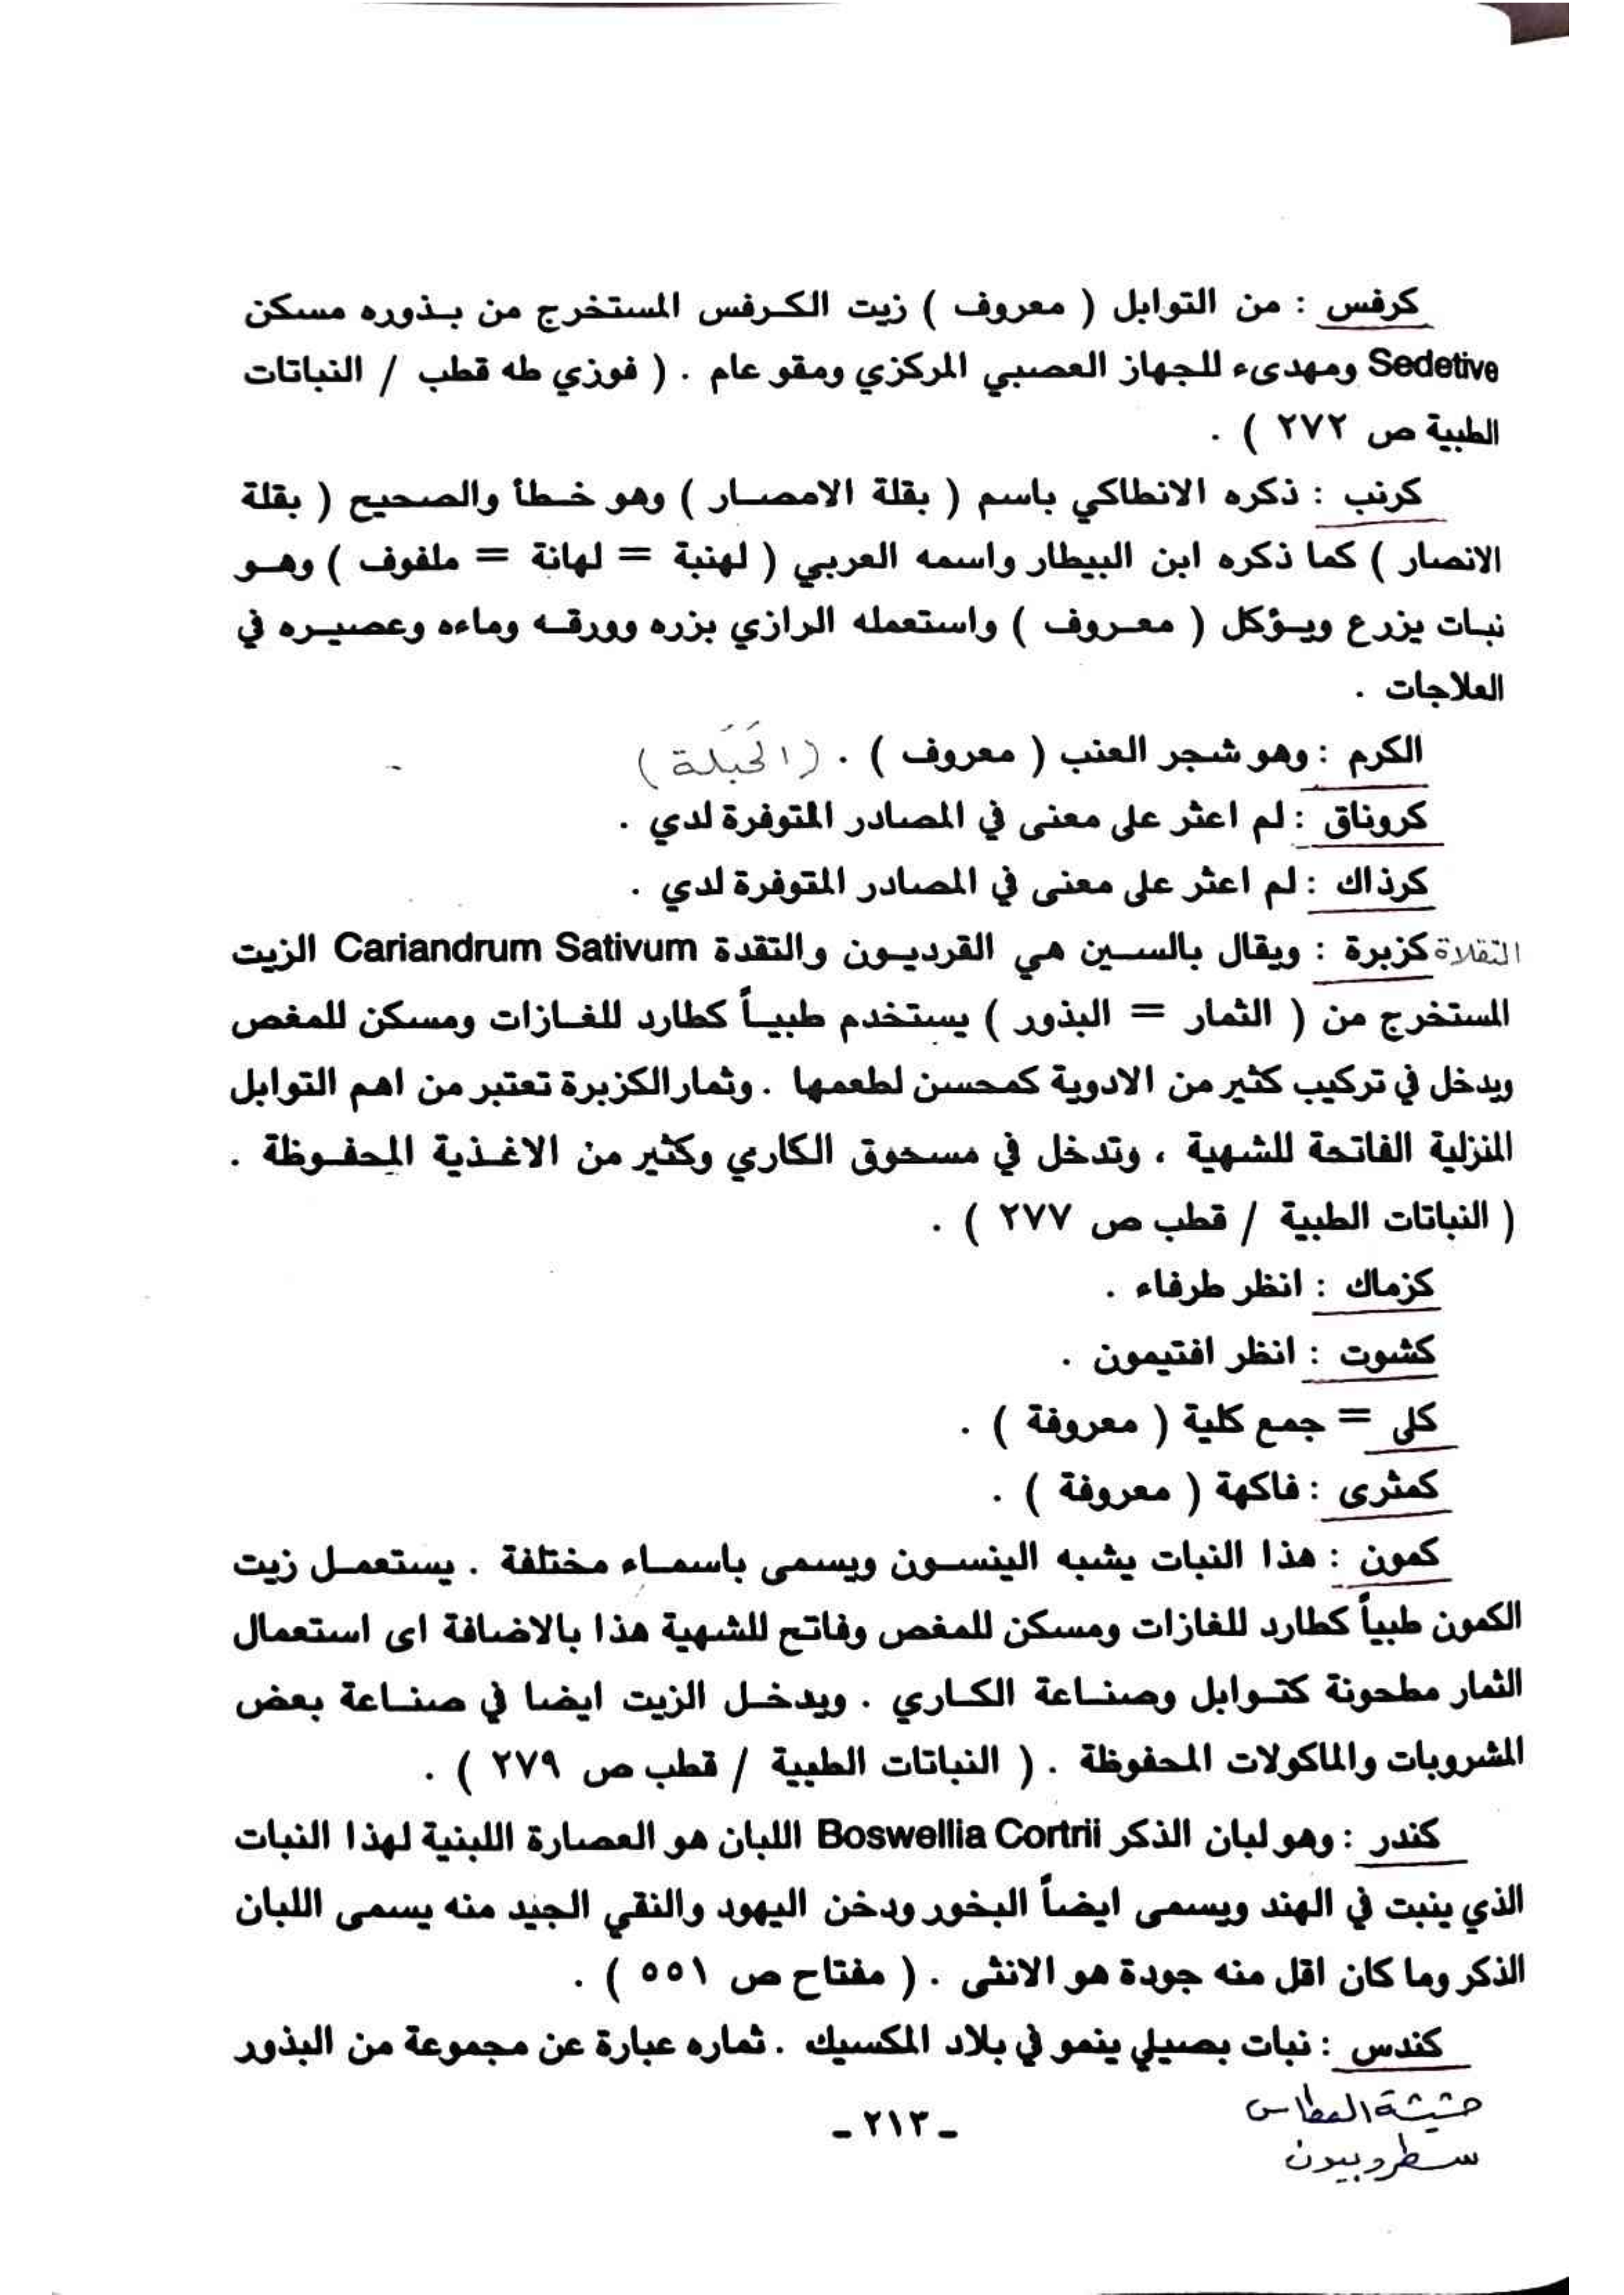 كرفس : من التوابل ( معروف ) زيت الكرفس المستخرج من بذوره مسكن
Sedetive ومهدىء للجهاز العصبي المركزي ومقو عام . ( فوزي طه قطب / النباتات
الطبية ص ٢٧٢ ) .
كرنب : ذكره الانطاكي باسم ( بقلة الامصار ) وهو خطأ والصحيح ( بقلة
الانصار ) كما ذكره ابن البيطار واسمه العربي ( لهنبة = لهانة = ملفوف ) وهو
نبات يزرع ويؤكل ( معروف ) واستعمله الرازي بزره وورقه وماءه وعصيره في
العلاجات .
الكرم : وهو شجر العنب ( معروف ) . ( الحَبَلة )
كروناق : لم اعثر على معنى في المصادر المتوفرة لدي .
كرذاك : لم اعثر على معنى في المصادر المتوفرة لدي .
التقلاة كزبرة : ويقال بالسين هي القرديون والتقدة Cariandrum Sativum الزيت
المستخرج من ( الثمار = البذور ) يستخدم طبياً كطارد للغازات ومسكن للمغص
ويدخل في تركيب كثير من الادوية كمحسن لطعمها . وثمار الكزبرة تعتبر من اهم التوابل
المنزلية الفاتحة للشهية ، وتدخل في مسحوق الكاري وكثير من الاغذية المحفوظة .
( النباتات الطبية / قطب ص ٢٧٧ ) .
كزماك : انظر طرفاء .
كشوت : انظر افتيمون .
كلى = جمع كلية ( معروفة ) .
كمثرى : فاكهة ( معروفة ) .
كمون : هذا النبات يشبه الينسون ويسمى باسماء مختلفة . يستعمل زيت
الكمون طبياً كطارد للغازات ومسكن للمغص وفاتح للشهية هذا بالاضافة اى استعمال
الثمار مطحونة كتوابل وصناعة الكاري . ويدخل الزيت ايضا في صناعة بعض
المشروبات والماكولات المحفوظة . ( النباتات الطبية / قطب ص ٢٧٩ ) .
كندر : وهو لبان الذكر Boswellia Cortrii اللبان هو العصارة اللبنية لهذا النبات
الذي ينبت في الهند ويسمى ايضاً البخور ودخن اليهود والنقي الجيد منه يسمى اللبان
الذكر وما كان اقل منه جودة هو الانثى . ( مفتاح ص ٥٥١ ) .
كندس : نبات بصيلي ينمو في بلاد المكسيك . ثماره عبارة عن مجموعة من البذور
حشيشة العطاس
سطروبيون
- ٢١٣ -